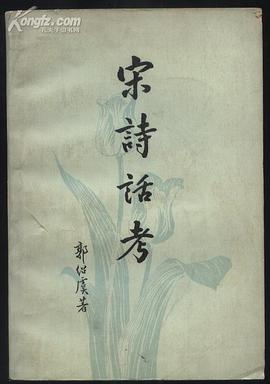 Kongfz.com
孔夫子旧书网
宋詩話考
郭绍虞著